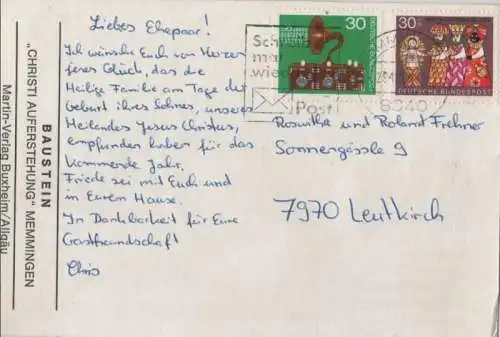 Liebes Ehepaar!
Ich wünsche Euch von Herzen
jenes Glück, das die
Heilige Familie am Tage der
Geburt ihres Sohnes, unseres
Heilandes Jesus Christus,
empfunden haben für das
kommende Jahr.
Friede sei mit Euch und
in Eurem Hause.
In Dankbarkeit für Eure
Gastfreundschaft
Chris
BAUSTEIN
„CHRISTI AUFERSTEHUNG" MEMMINGEN
Martin-Verlag Buxheim/Allgäu
30
DEUTSCHE BUNDESPOST
30
DEUTSCHE BUNDESPOST
Sch
mal
wieder
Post!
Roswitha und Roland Frehner
Sonnergässle 9
7970 Leutkirch